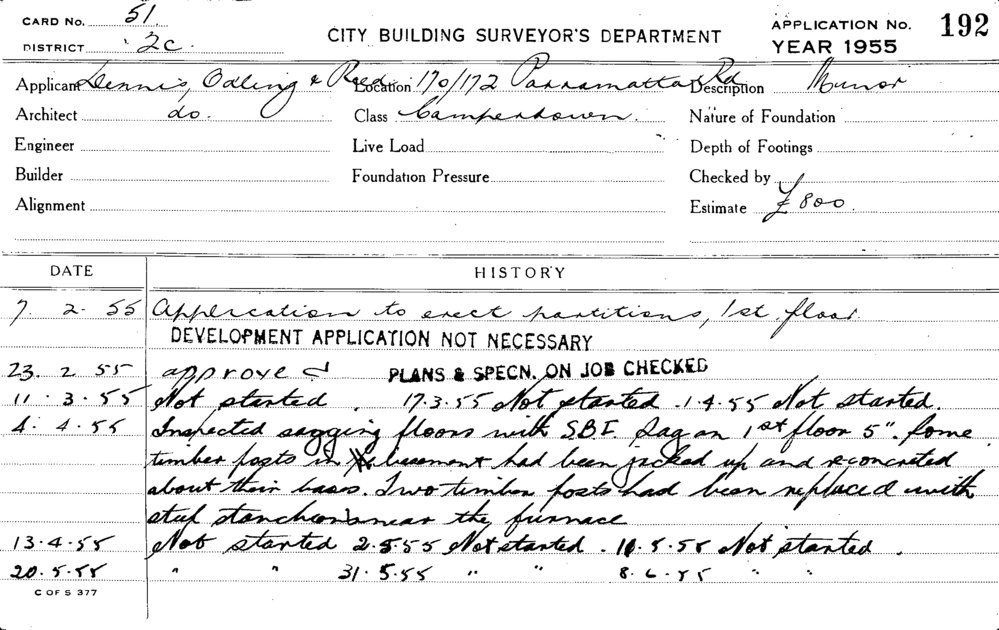 CARD No. 51
DISTRICT 2c.
CITY BUILDING SURVEYOR'S DEPARTMENT
APPLICATION No. 192
YEAR 1955
Applicant Dennis, Odling & Reed Location 170/172 Parramatta Rd Description Minor
Architect do. Class Camperdown. Nature of Foundation
Engineer Live Load Depth of Footings
Builder Foundation Pressure Checked by
Alignment Estimate £800.
DATE HISTORY
7. 2. 55 Application to erect partitions, 1st. floor.
DEVELOPMENT APPLICATION NOT NECESSARY
23. 2 55 approved PLANS & SPECN. ON JOB CHECKED
11. 3. 55 Not started. 17.3.55 Not started. 1.4.55 Not started.
4. 4. 55 Inspected sagging floors with S.B.I. Sag on 1st floor 5". Some
timber posts in basement had been jacked up and reconcreted
about their bases. Two timber posts had been replaced with
steel stanchions near the furnace
13.4.55 Not started 2.5.55 Not started. 16.5.55 Not started.
20.5.55 " " 31.5.55 " " 8.6.55 " "
C OF S 377